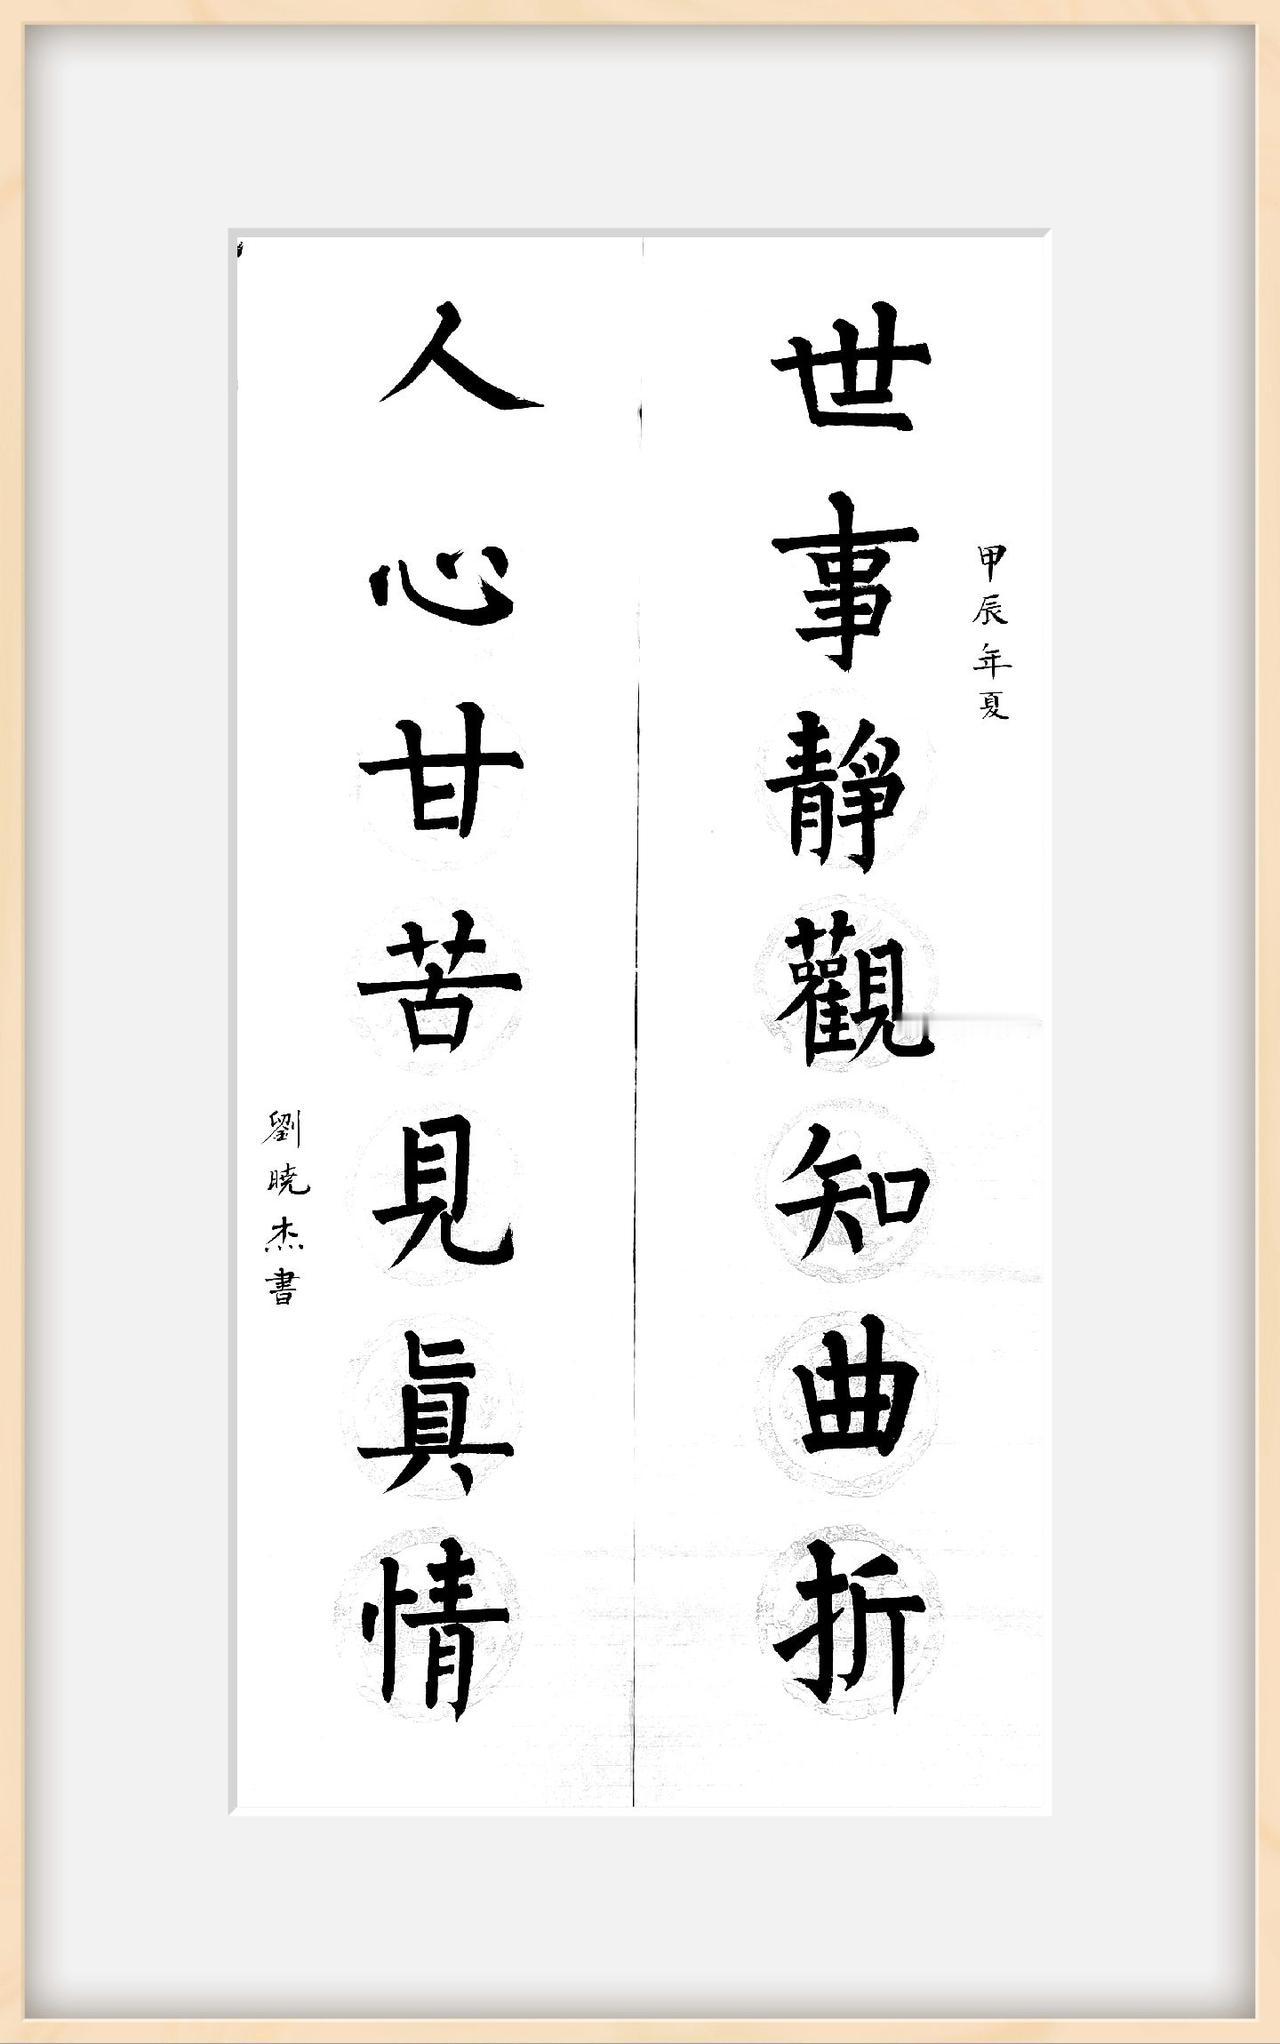 甲辰年夏
世事靜觀知曲折
人心甘苦見眞情
劉曉杰書